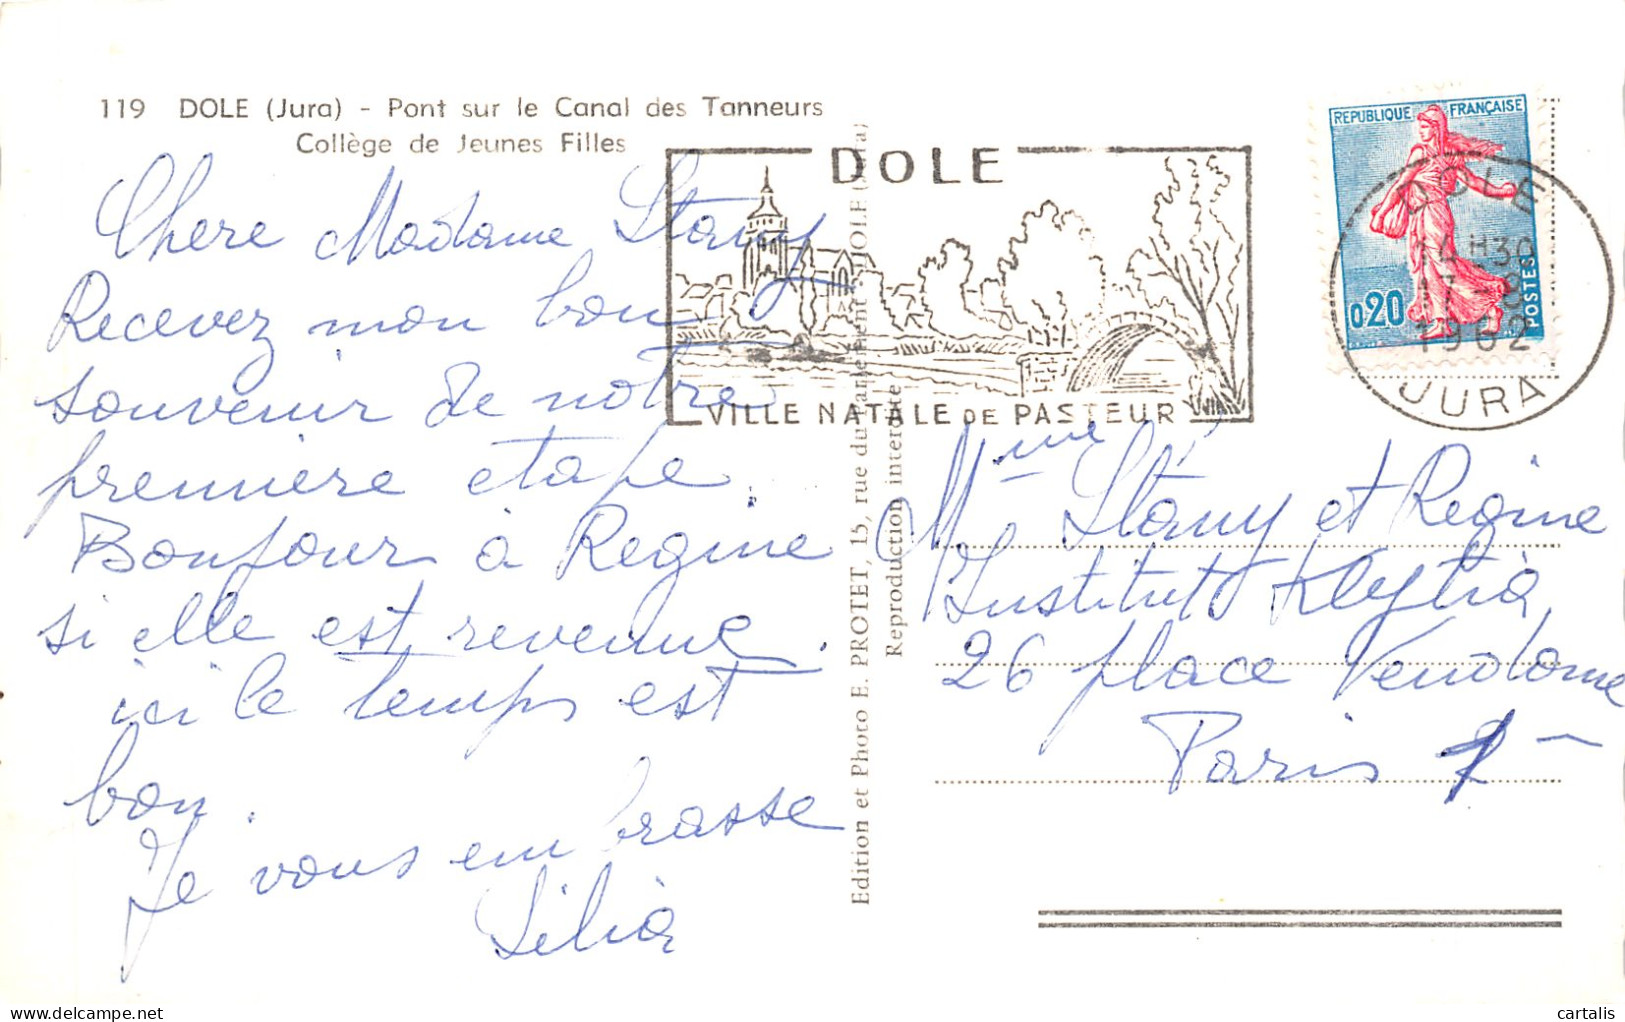 119 DOLE (Jura) - Pont sur le Canal des Tanneurs
Collège de Jeunes Filles
Chere Madame Stany
Recevez mon bon
souvenir de notre
premiere etape.
Bonjour à Regine
si elle est revenue.
ici le temps est
bon.
Je vous embrasse
Lilia
Edition et Photo E. PROTET, 15, rue du Parlement - DOLE (Jura)
Reproduction interdite
DOLE
VILLE NATALE DE PASTEUR
REPUBLIQUE FRANÇAISE
0,20
POSTES
DOLE
14H30
17 -8
1962
JURA
Mme Stany et Regine
Institut Klytia
26 place Vendome
Paris 1
cartalis